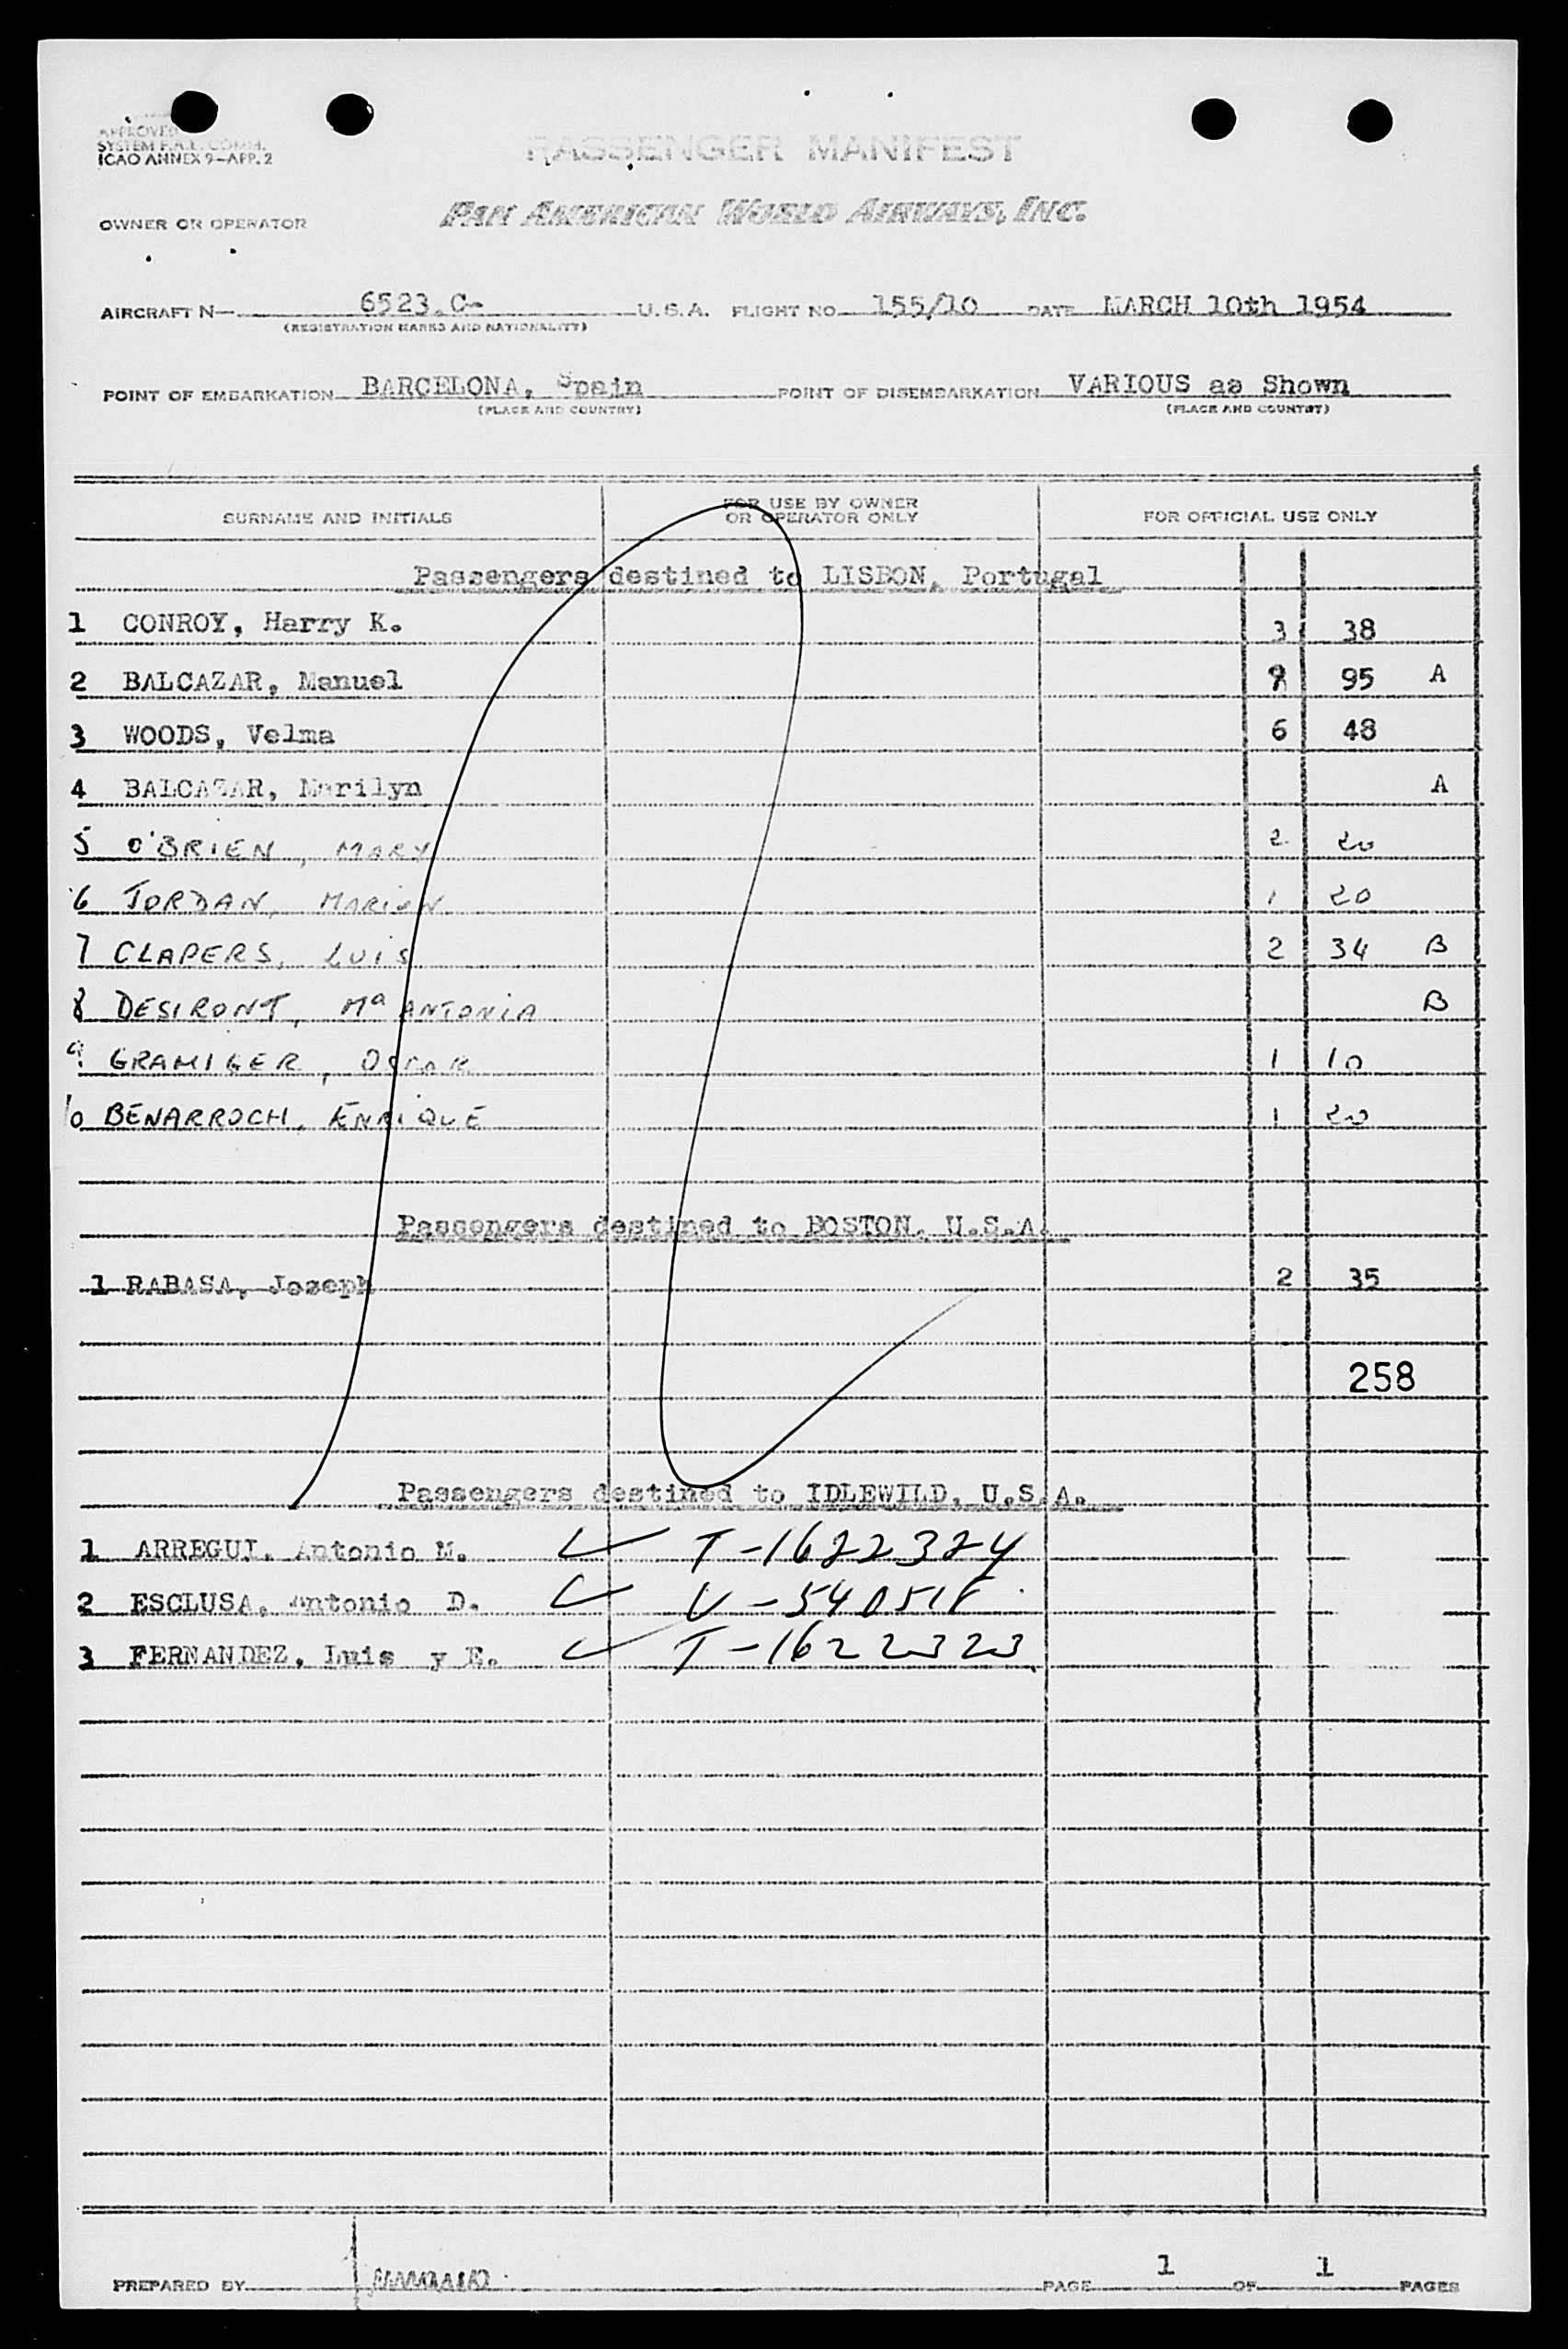 APPROVED
SYSTEM F.A.L. COMM.
ICAO ANNEX 9-APP. 2
PASSENGER MANIFEST
OWNER OR OPERATOR PAN AMERICAN WORLD AIRWAYS, INC.
AIRCRAFT N 6523.C- U.S.A. FLIGHT NO. 155/10 DATE MARCH 10th 1954
(REGISTRATION MARKS AND NATIONALITY)
POINT OF EMBARKATION BARCELONA, Spain POINT OF DISEMBARKATION VARIOUS as Shown
(PLACE AND COUNTRY) (PLACE AND COUNTRY)
SURNAME AND INITIALS FOR USE BY OWNER OR OPERATOR ONLY FOR OFFICIAL USE ONLY
Passengers destined to LISBON, Portugal
1 CONROY, Harry K. 3 38
2 BALCAZAR, Manuel 95 A
3 WOODS, Velma 6 48
4 BALCAZAR, Marilyn A
5 O'BRIEN, MARY 2 20
6 JORDAN, MARION 1 20
7 CLAPERS, LUIS 2 34 B
8 DESIRONT, Mª ANTONIA B
9 GRAMIGER, OSCAR 1 10
10 BENARROCH, ENRIQUE 1 20
Passengers destined to BOSTON, U.S.A.
1 RABASA, Joseph 2 35
258
Passengers destined to IDLEWILD, U.S.A.
1 ARREGUI, Antonio M. ✓ T-1622324
2 ESCLUSA, Antonio D. ✓
3 FERNANDEZ, Luis y E. ✓ T-1622323
PREPARED BY PAGE 1 OF 1 PAGES